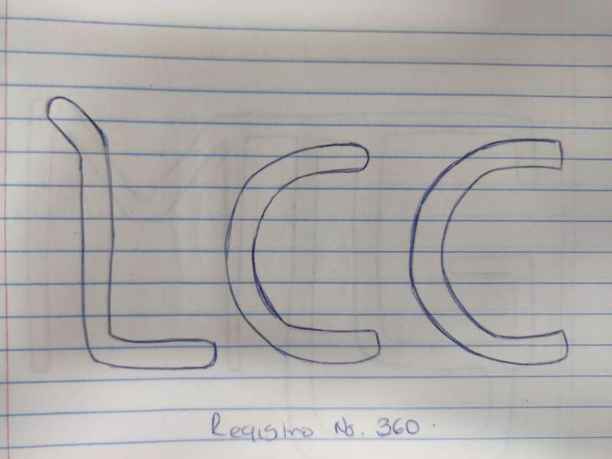 LCC
Registro No. 360.